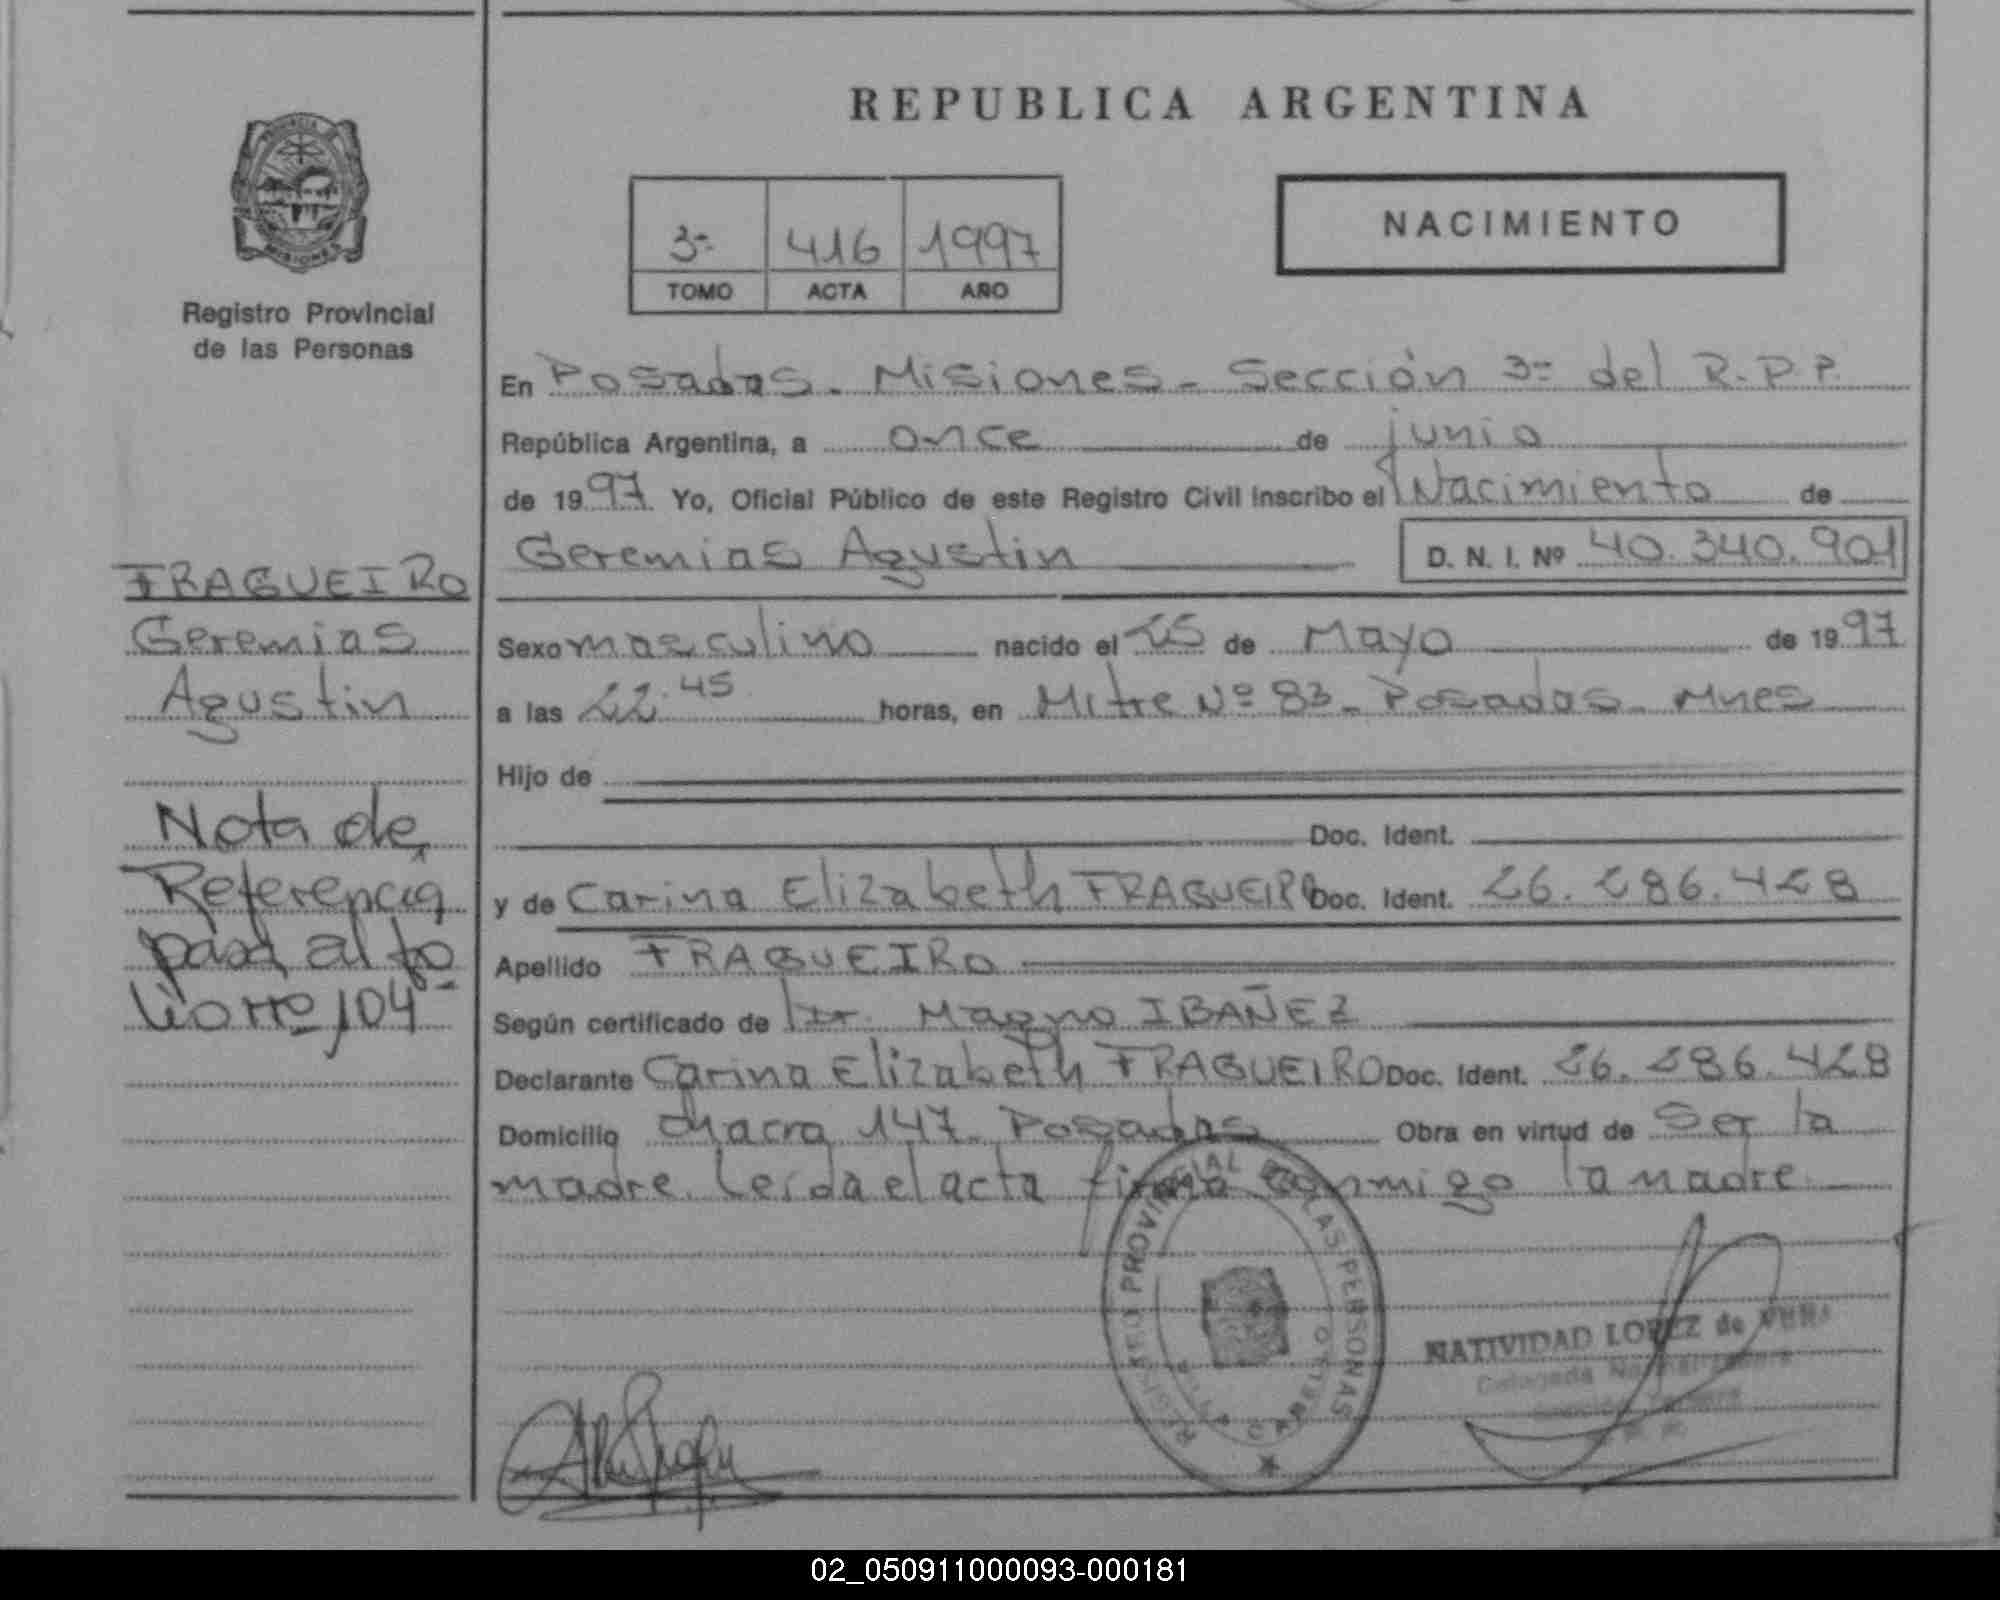 REPUBLICA ARGENTINA
PROVINCIA DE
MISIONES
Registro Provincial
de las Personas
3ª 416 1997
TOMO ACTA AÑO
NACIMIENTO
En Posadas - Misiones - Sección 3ª del R.P.P.
República Argentina, a once de junio
de 1997 Yo, Oficial Público de este Registro Civil inscribo el Nacimiento de
Geremias Agustin D. N. I. Nº 40.340.901
FRAGUEIRO
Geremias
Agustin
Sexo masculino nacido el 25 de Mayo de 1997
a las 22.45 horas, en Mitre Nº 83 - Posadas - Mnes
Hijo de
Doc. Ident.
y de Carina Elizabeth FRAGUEIRO Doc. Ident. 26.286.428
Apellido FRAGUEIRO
Según certificado de Dr. Magno IBAÑEZ
Declarante Carina Elizabeth FRAGUEIRO Doc. Ident. 26.286.428
Domicilio Chacra 147 - Posadas Obra en virtud de Ser la
madre. Leida el acta firma conmigo la madre
Nota de
Referencia
pasa al fo
104
REGISTRO PROVINCIAL DE LAS PERSONAS
CABELLO
NATIVIDAD LOPEZ de
Delegada
02_050911000093-000181